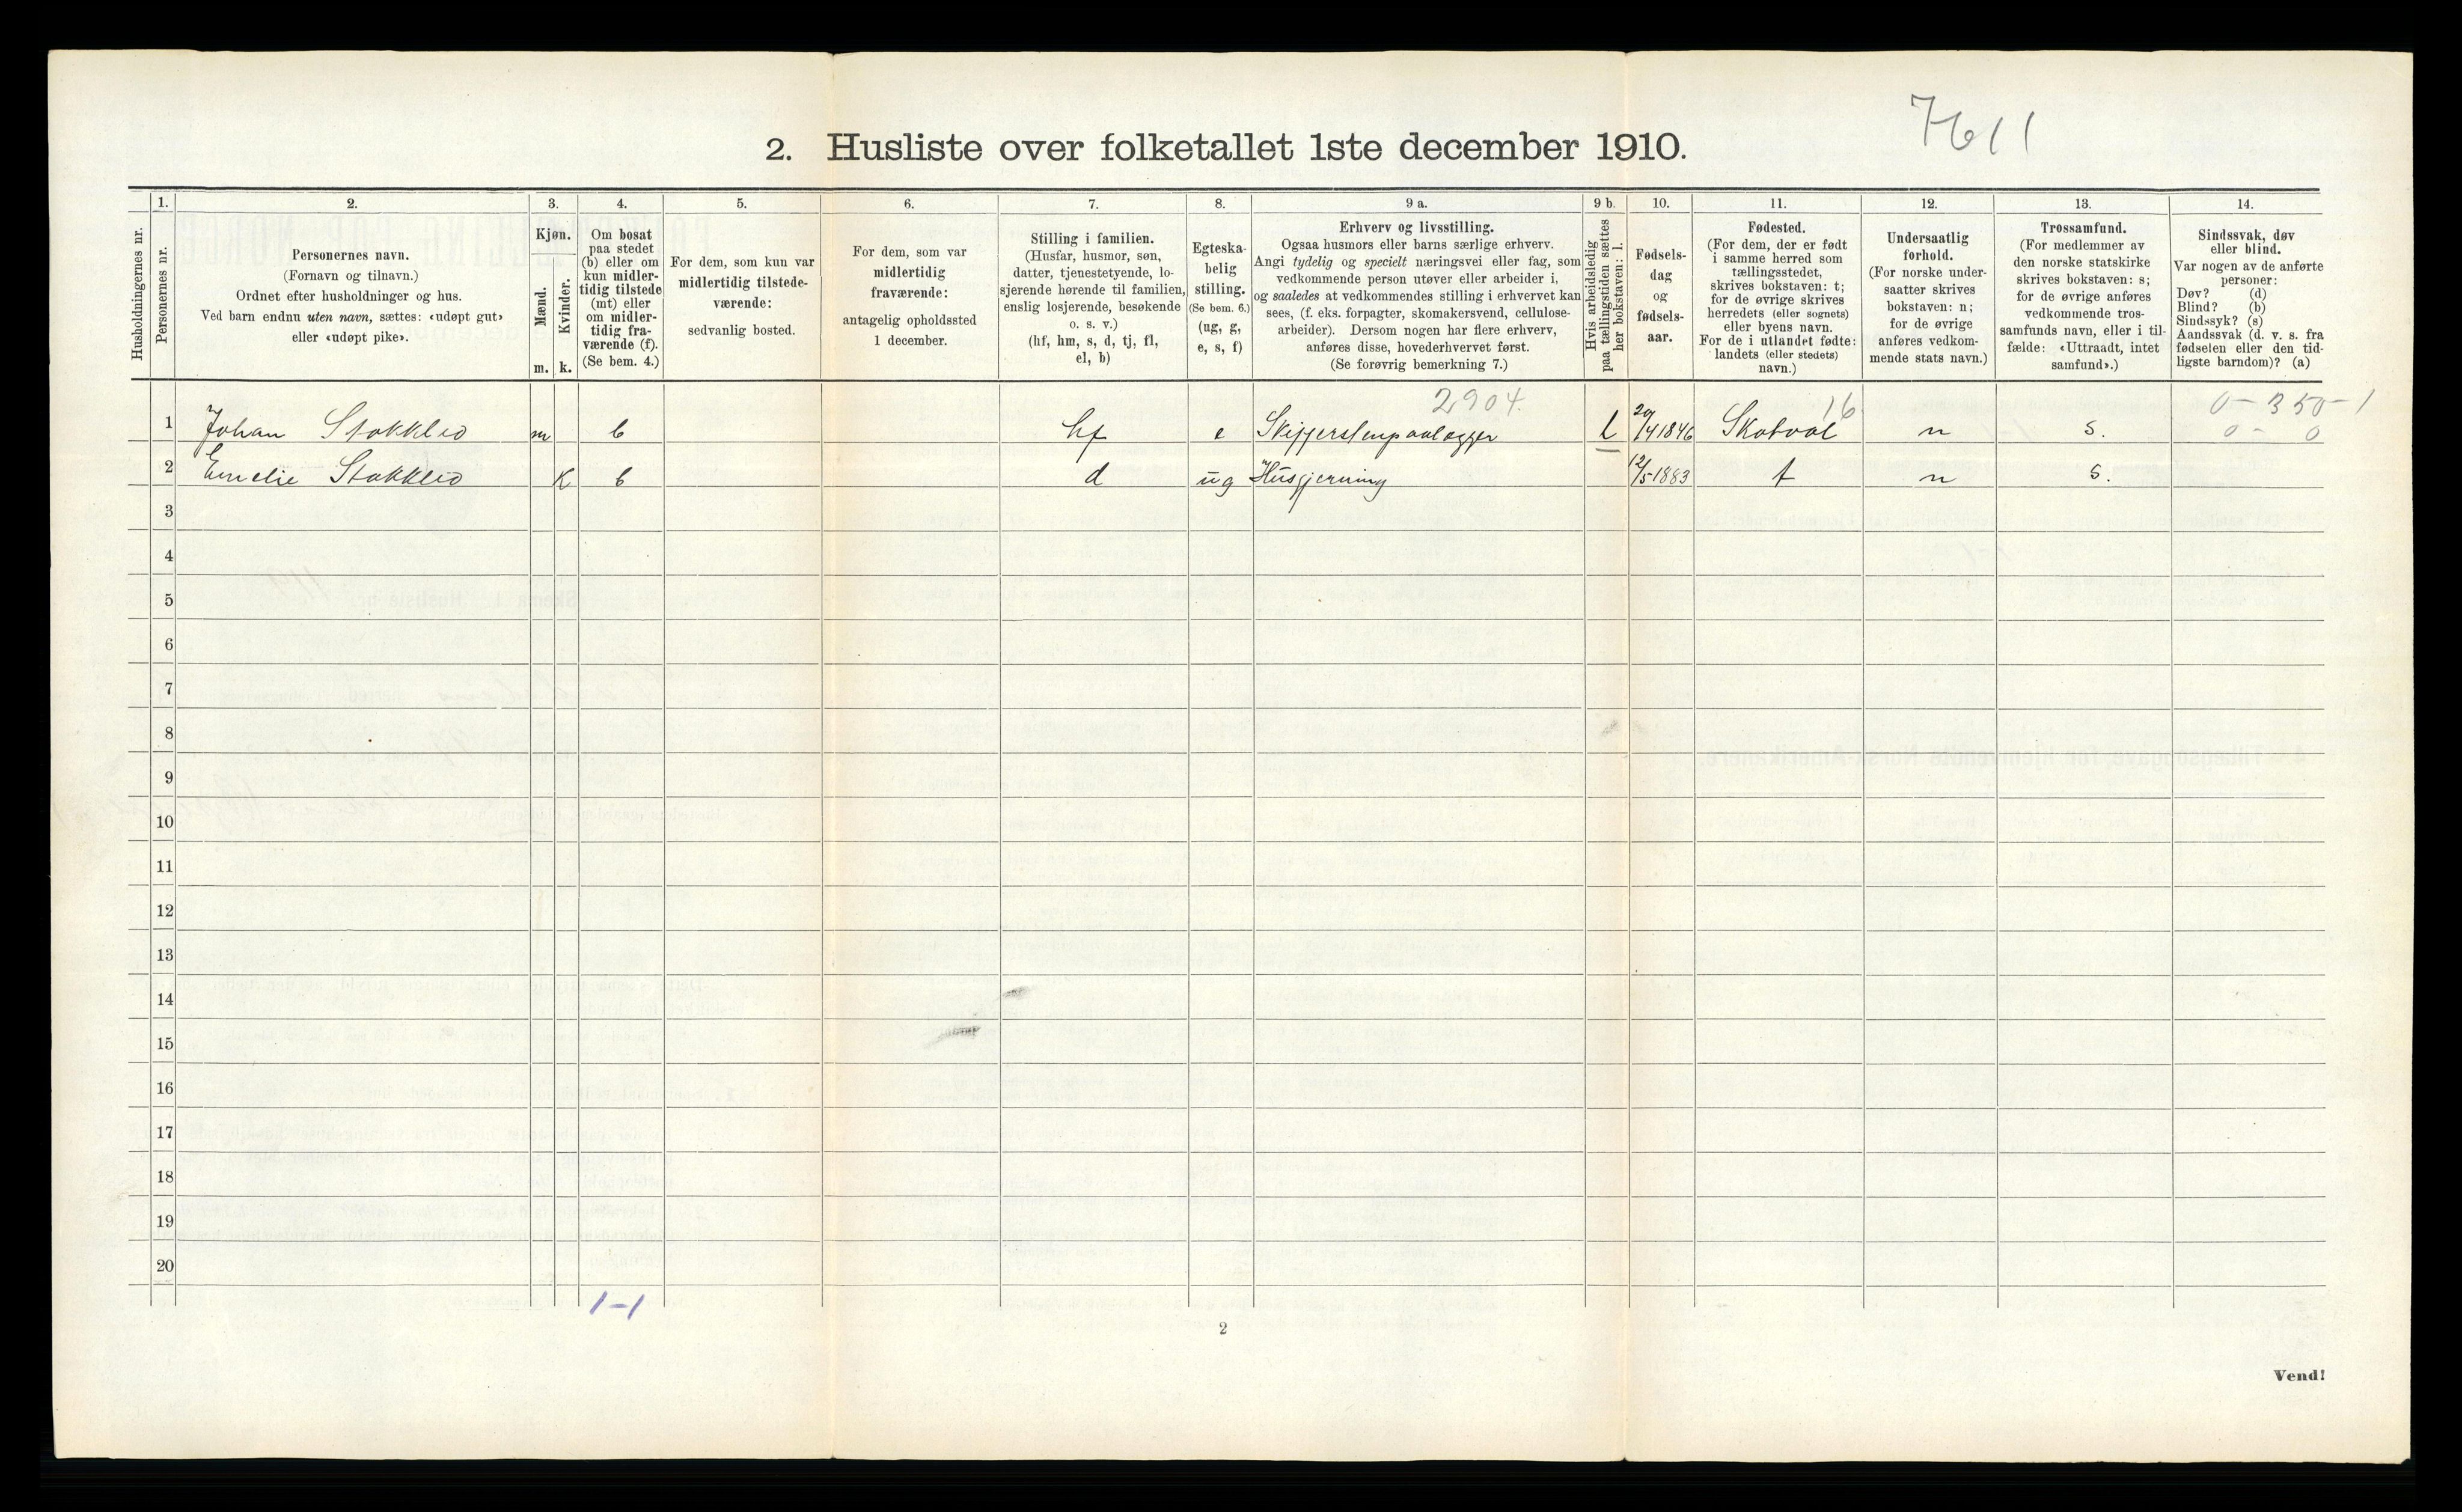 7611
2. Husliste over folketallet 1ste december 1910.
Husholdningernes nr.
1.
Personernes nr.
2.
Personernes navn.
(Fornavn og tilnavn.)
Ordnet efter husholdninger og hus.
Ved barn endnu uten navn, sættes: «udøpt gut»
eller «udøpt pike».
3.
Kjøn.
Mænd.
m.
Kvinder.
k.
4.
Om bosat
paa stedet
(b) eller om
kun midler-
tidig tilstede
(mt) eller
om midler-
tidig fra-
værende (f).
(Se bem. 4.)
5.
For dem, som kun var
midlertidig tilstede-
værende:
sedvanlig bosted.
6.
For dem, som var
midlertidig
fraværende:
antagelig opholdssted
1 december.
7.
Stilling i familien.
(Husfar, husmor, søn,
datter, tjenestetyende, lo-
sjerende hørende til familien,
enslig losjerende, besøkende
o. s. v.)
(hf, hm, s, d, tj, fl,
el, b)
8.
Egteska-
belig
stilling.
(Se bem. 6.)
(ug, g,
e, s, f)
9 a.
Erhverv og livsstilling.
Ogsaa husmors eller barns særlige erhverv.
Angi tydelig og specielt næringsvei eller fag, som
vedkommende person utøver eller arbeider i,
og saaledes at vedkommendes stilling i erhvervet kan
sees, (f. eks. forpagter, skomakersvend, cellulose-
arbeider). Dersom nogen har flere erhverv,
anføres disse, hovederhvervet først.
(Se forøvrig bemerkning 7.)
9 b.
Hvis arbeidsledig
paa tællingstiden sættes
her bokstaven: l.
10.
Fødsels-
dag
og
fødsels-
aar.
11.
Fødested.
(For dem, der er født
i samme herred som
tællingsstedet,
skrives bokstaven: t;
for de øvrige skrives
herredets (eller sognets)
eller byens navn.
For de i utlandet fødte:
landets (eller stedets)
navn.)
12.
Undersaatlig
forhold.
(For norske under-
saatter skrives
bokstaven: n;
for de øvrige
anføres vedkom-
mende stats navn.)
13.
Trossamfund.
(For medlemmer av
den norske statskirke
skrives bokstaven: s;
for de øvrige anføres
vedkommende tros-
samfunds navn, eller i til-
fælde: «Uttraadt, intet
samfund».)
14.
Sindssvak, døv
eller blind.
Var nogen av de anførte
personer:
Døv? (d)
Blind? (b)
Sindssyk? (s)
Aandssvak (d. v. s. fra
fødselen eller den tid-
ligste barndom)? (a)
2904. 16 0-350-1
1 Johan Stokkleiv m b hf e L 20/4 1846 Skatval n s. 0- 0
2 Emelie Stokkleiv K b d ug Husgjerning 12/5 1883 t n s.
3
4
5
6
7
8
9
10
11
12
13
14
15
16
17
18
19
20
1-1
2
Vend!